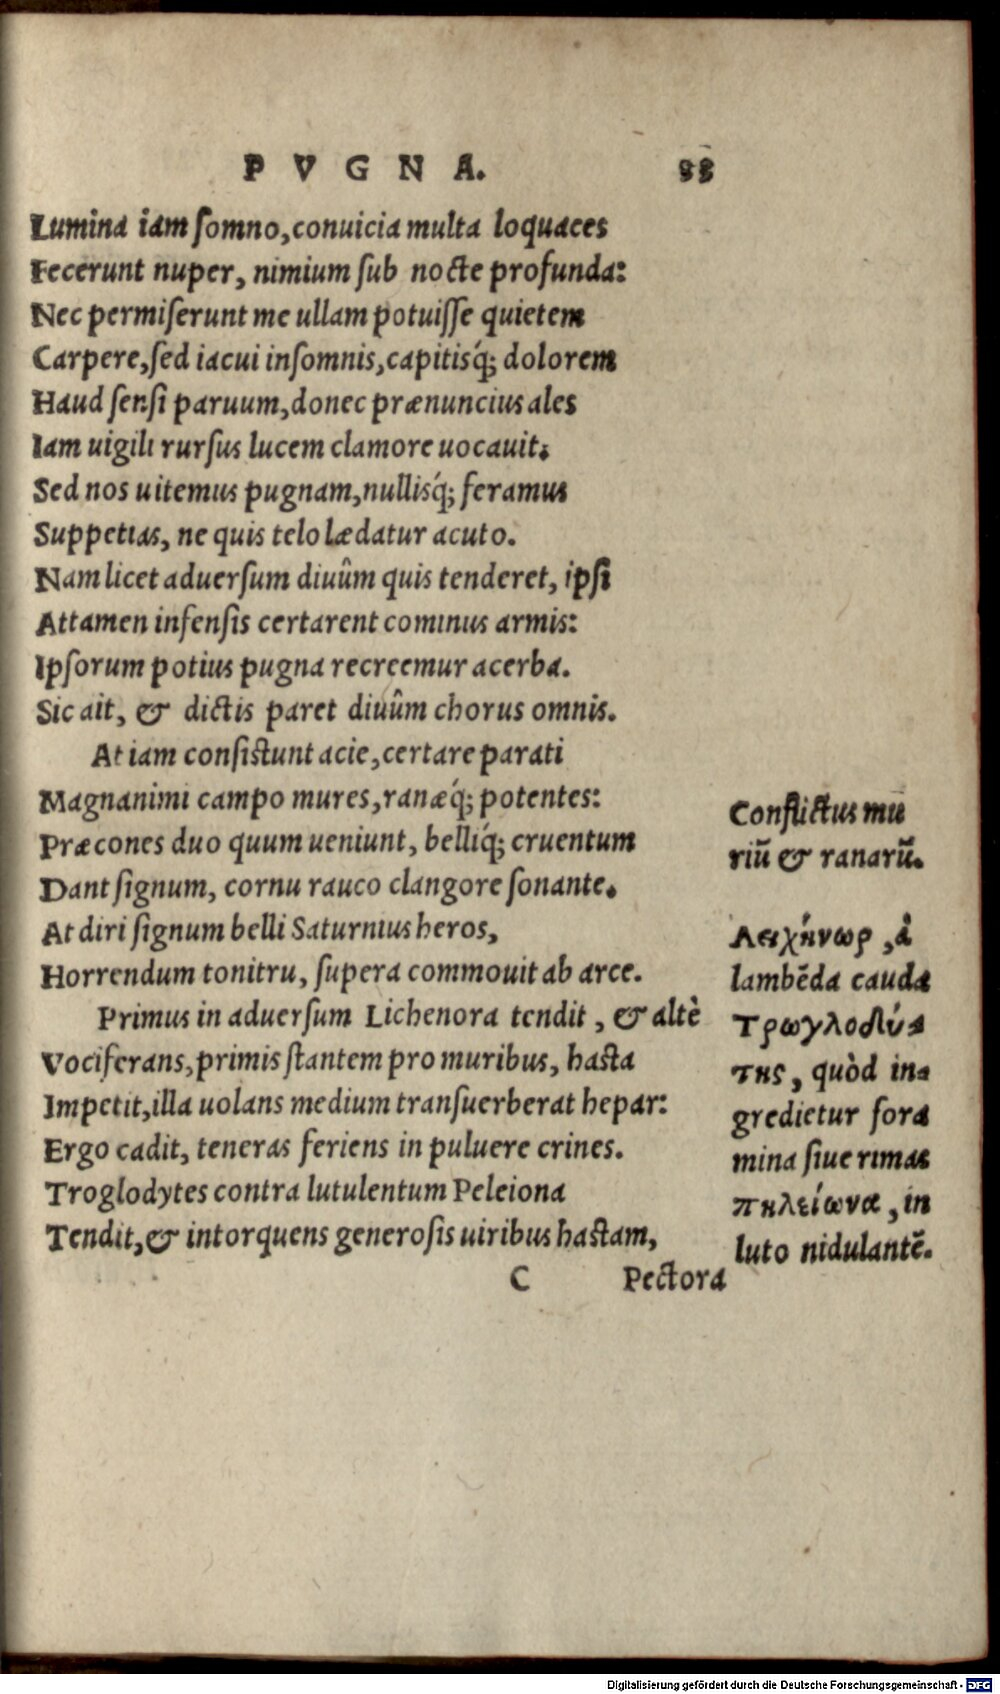 PVGNA. 33
Lumina iam ſomno, conuicia multa loquaces
Fecerunt nuper, nimium ſub nocte profunda:
Nec permiſerunt me ullam potuiſſe quietem
Carpere, ſed iacui inſomnis, capitisq́; dolorem
Haud ſenſi paruum, donec prænuncius ales
Iam uigili rurſus lucem clamore uocauit.
Sed nos uitemus pugnam, nullisq́; feramus
Suppetias, ne quis telo lædatur acuto.
Nam licet aduerſum diuûm quis tenderet, ipſi
Attamen infenſis certarent cominus armis:
Ipſorum potius pugna recreemur acerba.
Sic ait, & dictis paret diuûm chorus omnis.
At iam conſiſtunt acie, certare parati
Magnanimi campo mures, ranæq́; potentes:
Præcones duo quum ueniunt, belliq́; cruentum
Dant ſignum, cornu rauco clangore ſonante.
At diri ſignum belli Saturnius heros,
Horrendum tonitru, ſupera commouit ab arce.
Primus in aduerſum Lichenora tendit, & altè
Vociferans, primis ſtantem pro muribus, haſta
Impetit, illa uolans medium tranſuerberat hepar:
Ergo cadit, teneras feriens in puluere crines.
Troglodytes contra lutulentum Peleiona
Tendit, & intorquens generoſis uiribus haſtam,
C Pectora
Conflictus mu
riū & ranarū.
Λειχήνωρ, à
lambēda cauda
Τρωγλοδύ
της, quòd in
gredietur fora
mina ſiue rimas
πηλείωνα, in
luto nidulantē.
Digitalisierung gefördert durch die Deutsche Forschungsgemeinschaft - DFG